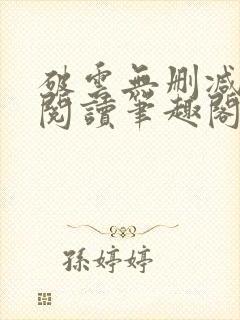 破雲無刪减
閱讀筆趣閣
孫婷婷